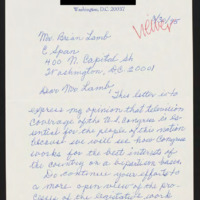 Washington, D.C. 20037
Mr. Brian Lamb
C Span
400 N. Capitol St
Washington, DC 20001
Dear Mr. Lamb:
This letter is to
express my opinion that television
coverage of the U.S. Congress is es-
sential for the people of this nation
because we will see how Congress
works for the best interests of
the country on a bipartisan basis.
Do continue your efforts to
a more open view of the pro-
cesses of the legislative work